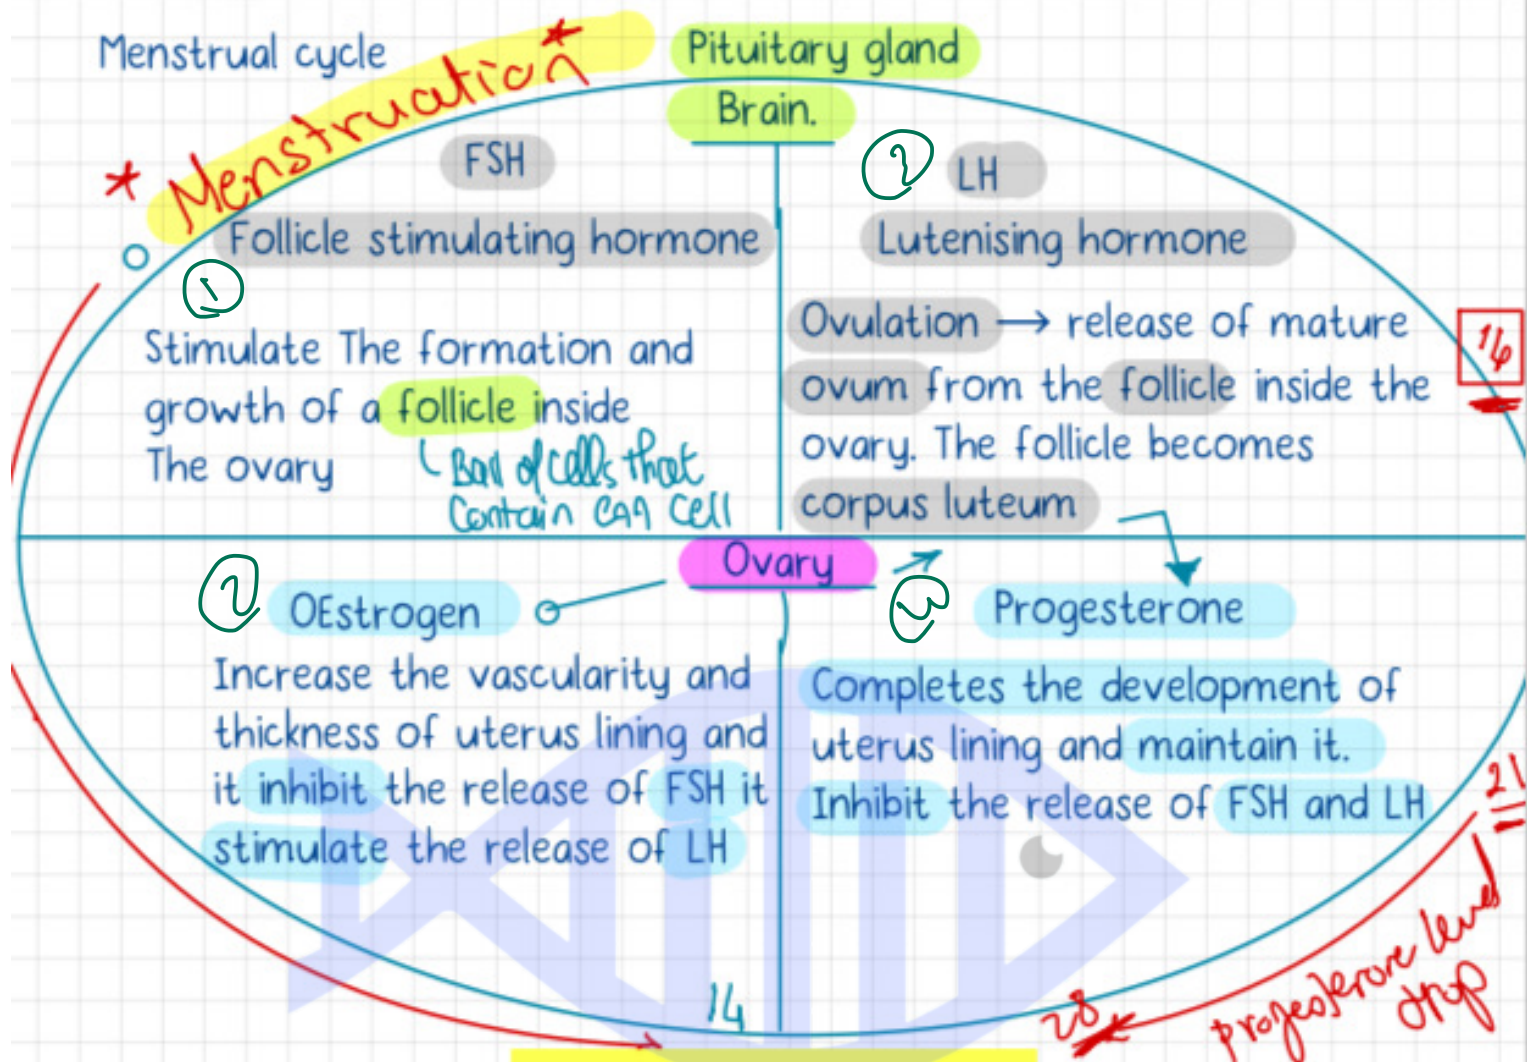 Menstrual cycle
Menstruation
Pituitary gland
Brain.
FSH
Follicle stimulating hormone
1
Stimulate The formation and
growth of a follicle inside
The ovary
Ball of cells that
Contain egg cell
2
LH
Lutenising hormone
Ovulation → release of mature
ovum from the follicle inside the
ovary. The follicle becomes
corpus luteum
Ovary
2
OEstrogen
Increase the vascularity and
thickness of uterus lining and
it inhibit the release of FSH it
stimulate the release of LH
14
3
Progesterone
Completes the development of
uterus lining and maintain it.
Inhibit the release of FSH and LH
21
28
progesterone level
drop